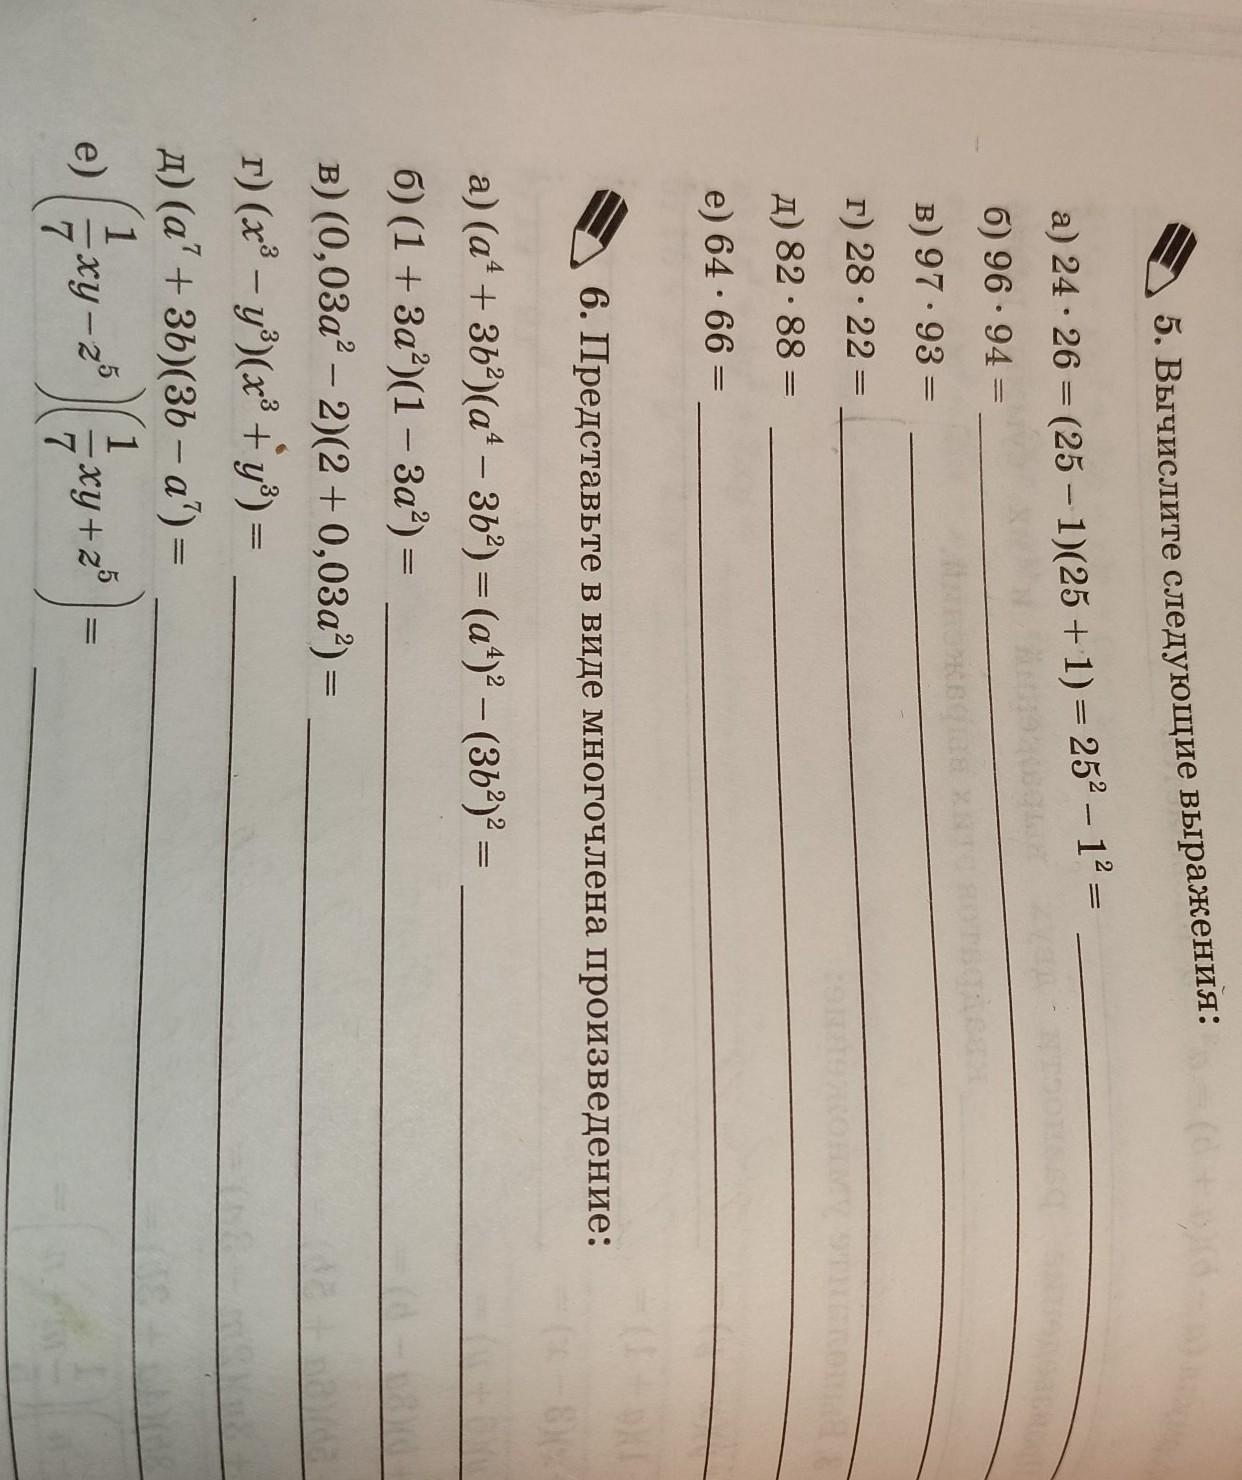 5. Вычислите следующие выражения:
а) 24 · 26 = (25 − 1)(25 + 1) = 25² − 1² =
б) 96 · 94 =
в) 97 · 93 =
г) 28 · 22 =
д) 82 · 88 =
е) 64 · 66 =
6. Представьте в виде многочлена произведение:
а) (a⁴ + 3b²)(a⁴ − 3b²) = (a⁴)² − (3b²)² =
б) (1 + 3a²)(1 − 3a²) =
в) (0,03a² − 2)(2 + 0,03a²) =
г) (x³ − y³)(x³ + y³) =
д) (a⁷ + 3b)(3b − a⁷) =
е) (1/7 xy − z⁵)(1/7 xy + z⁵) =